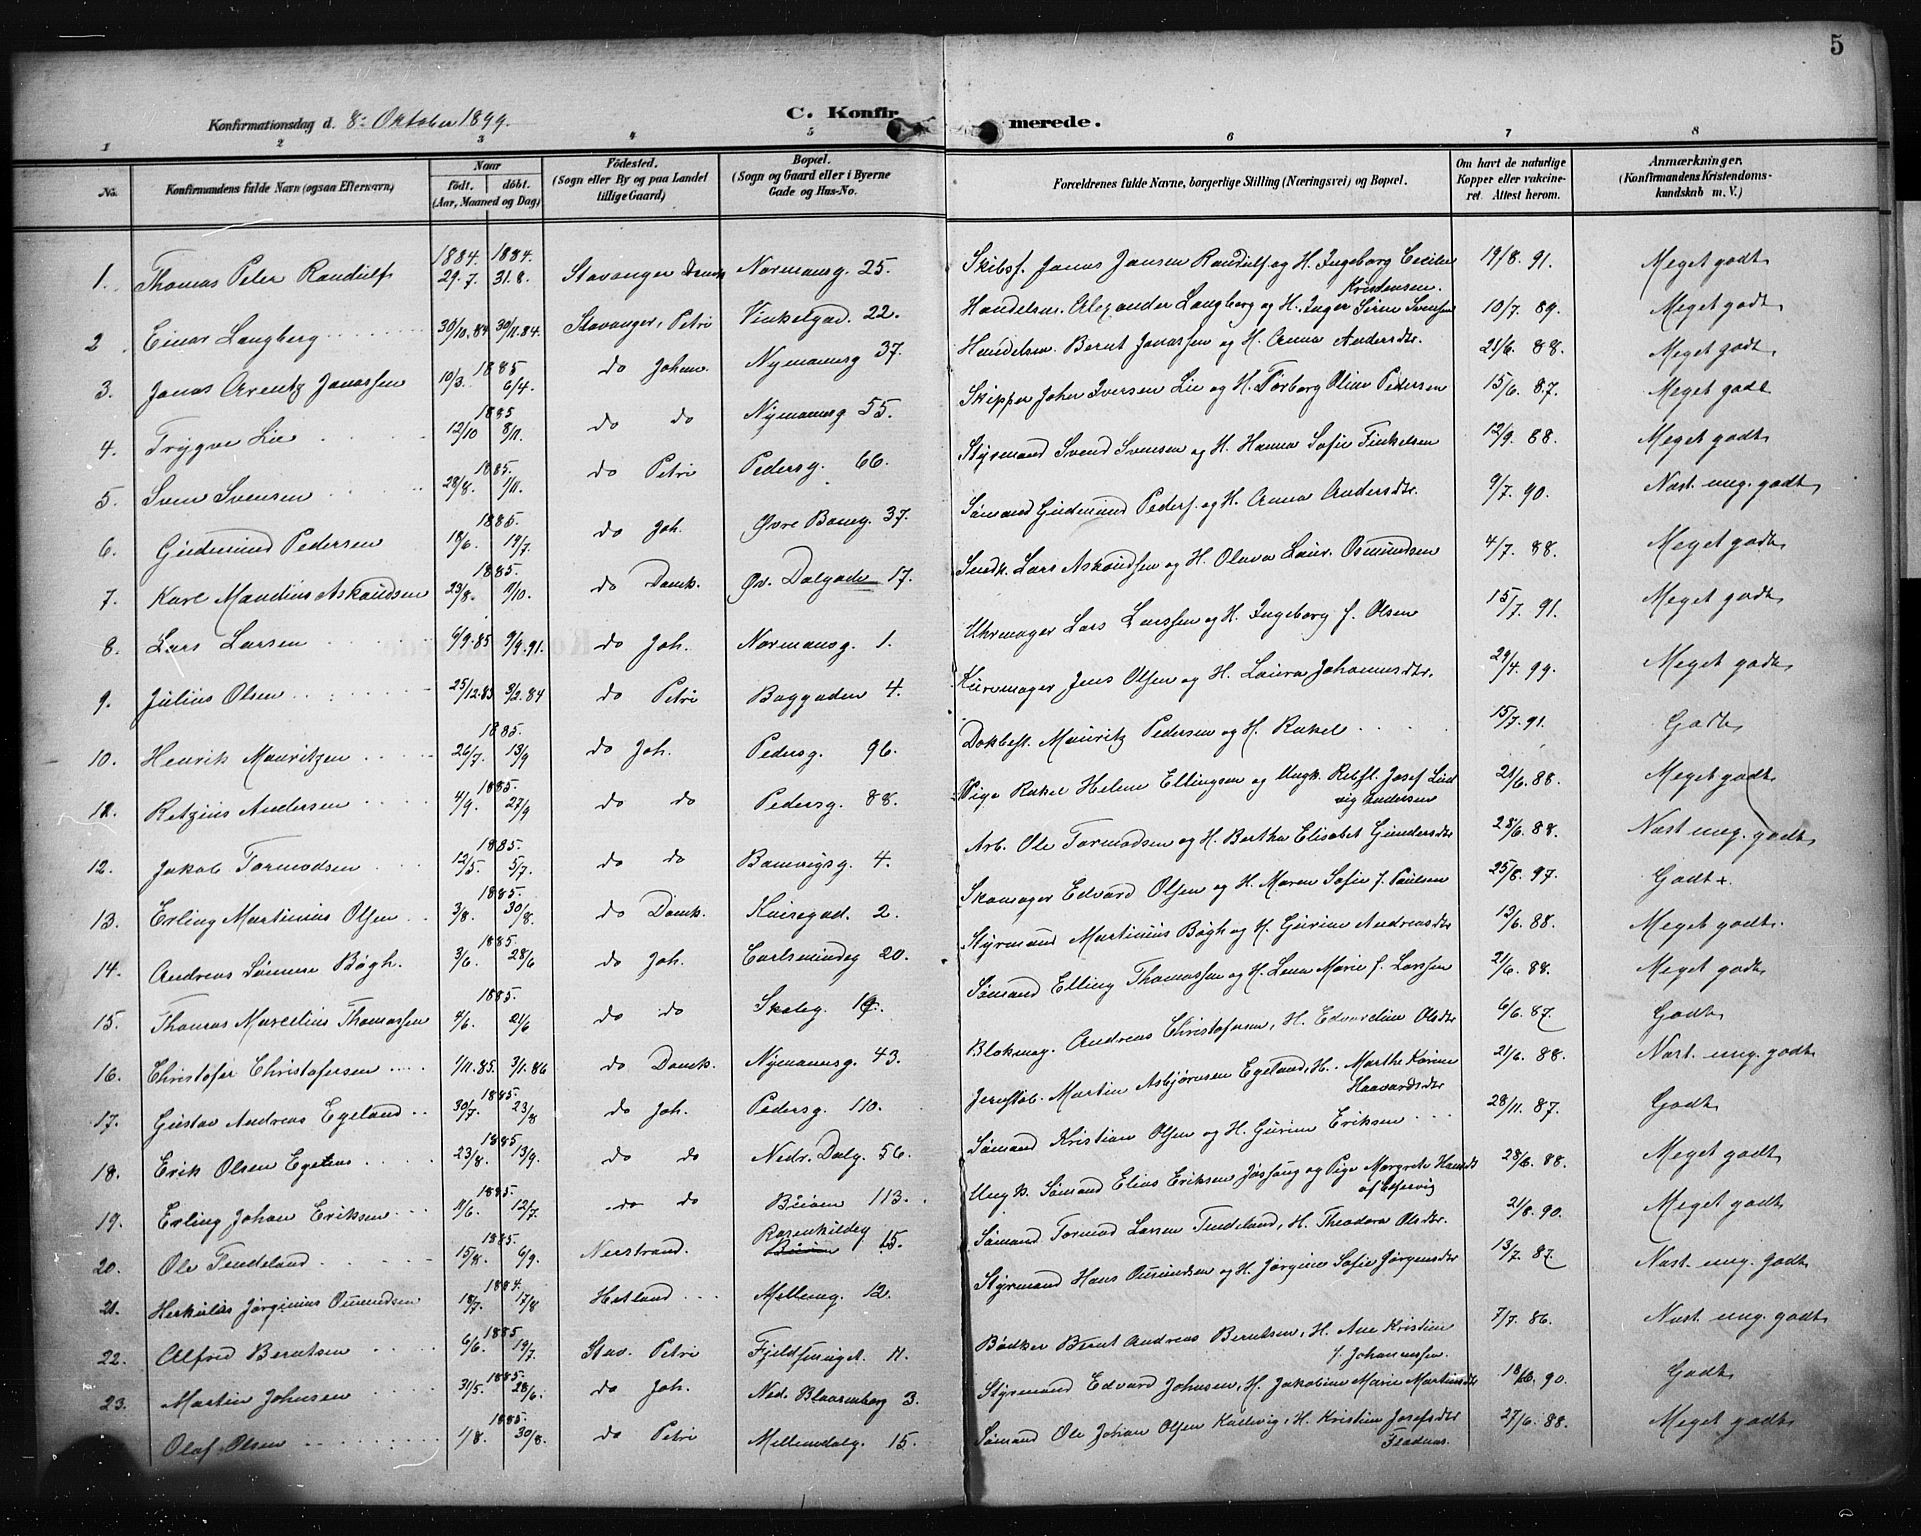 5
Konfirmationsdag d. 8: Oktober 1899.
C. Konfirmerede.
1 2 3 4 5 6 7 8
No. Konfirmandens fulde Navn (ogsaa Efternavn) Naar født. døbt. (Aar, Maaned og Dag) Födested. (Sogn eller By og paa Landet tillige Gaard) Bopæl. (Sogn og Gaard eller i Byerne Gade og Hus-No. Forældrenes fulde Navne, borgerlige Stilling (Næringsvei) og Bopæl. Om havt de naturlige Kopper eller vakcineret. Attest herom. Anmærkninger. (Konfirmandens Kristendomskundskab m. V.)
1. Thomas Peter Randulf 1884. 29.7. 1884. 31.8. Stavanger Domk Normansg. 25. Skibsf. Jonas Jansen Randulf og H. Ingeborg Cecilie Kristensen. 19/8. 91. Meget godt
2. Einar Langberg 30/10.84 30/11.84. Stavanger, Petri Vinkelgad. 22. Handelsm. Alexander Langberg og H. Inger Serine Svensen 10/7. 89. Meget godt
3. Jonas Arentz Jonassen 1885 10/3. 6/4. do Johan. Nymannsg 37. Handelsm. Bernt Jonassen og H. Anna Andersdtr. 21/6. 88. Meget godt
4. Trygve Lie 1885 12/10 8/11. do do Nymannsg 55. Skipper Johan Iversen Lie og H. Torborg Oline Pedersen 15/6. 87. Meget godt
5. Sven Svensen 1885. 28/8. 1/11. do Petri Pedersg. 66. Styrmand Svend Svensen og H. Hanna Sofie Finkelsen 12/9. 88. Meget godt
6. Gudmund Pedersen 1885. 18/6. 19/7. do Joh. Øvre Baneg. 37. Sømand Gudmund Peders. og H. Anna Andersdtr. 9/7. 90. Næst. mg. godt
7. Karl Mandius Askoudsen 1885. 23/8. 11/10. do Domk. Øv. Dalgade 17. Snedk. Lars Askoudsen og H. Olava Laur. Osmundsen 4/7. 88. Meget godt
8. Lars Larsen 6/9.85 9/9.91. do Joh. Normansg. 1. Uhrmager Lars Larssen og H. Ingeborg f. Olsen 15/7. 91. Meget godt
9. Julius Olsen 25/12.83 3/2.84 do Petri Baggaden 4. Kurvmager Jens Olsen og H. Laura Johannesdtr. 29/4. 99. Meget godt
10. Henrik Mauritzen 1885. 26/7. 13/9 do Joh. Pedersg. 96. Dokbest. Mauritz Pedersen og H. Rakel 15/7.91. Godt
11. Retzius Andersen 1885. 4/9. 27/9 do do Pedersg. 88. Pige Rakel Helene Ellingsen og Ungk. Rebsl. Josef Ludvig Andersen 21/6.88. Meget godt
12. Jakob Tormodsen 1885. 12/5. 5/7. do do Banevigsg. 4. Arb. Ole Tormodsen og H. Bertha Elisabet Gundersdtr 28/6. 88. Næst mg. godt
13. Erling Martinius Olsen 1885. 3/8. 30/8. do Domk. Kuregad. 2. Skomager Edvard Olsen og H. Maren Sofie f. Paulsen 25/8. 97. Godt+.
14. Andreas Sømme Bøgh. 1885. 3/6. 28/6 do Joh. Carlsmindeg 20. Styrmand Martinius Bøgh og H. Gurine Andreasdtr 13/6. 88. Meget godt.
15. Thomas Marcelius Thomassen 1885. 4/6. 21/6 do do Skoleg. Sømand Elling Thomassen og H. Lena Marie f. Larsen 21/6. 88. Meget godt
16. Christofer Christofersen 1/11.85. 3/1.86 do Domk. Nymannsg. 43. Blokmag. Andreas Christofersen, H. Edvardine Olsdtr 6/6. 87. Godt
17. Gustav Andreas Egeland 1885. 30/7. 23/8 do Joh. Pedersg. 110. Jernstøb. Martin Asbjørnsen Egeland, H. Marthe Karine Haavardsdtr 21/6. 88. Næst. mg. godt
18. Erik Olsen Egenes 1885 23/8. 13/9. do do Nedr. Dalg. 56. Sømand Kristian Olsen og H. Gurine Eriksen 28/11. 87. Godt
19. Erling Johan Eriksen 1885. 11/6. 12/7. do do Buøen 113. Ungk. Sømand Elias Eriksen Jøssang og Pige Margrete 28/6. 88. Meget godt
20. Ole Tendeland 1885 15/8. 6/9. Nerstrand. Rosenkildeg 15. Sømand Tormod Larsen Tendeland, H. Theodora Olsdtr. 21/8. 90. Meget godt
21. Herkules Jørginius Omundsen 1884. 18/7. 17/8 Hetland Mellemg. 12. Styrmand Hans Omundsen og H. Jørgine Sofie Jørgensdtr 13/7. 87. Næst. mg. godt
22. Alfred Berntsen 1885. 6/6. 19/7. Stav. Petri 11. Bødker Bernt Andreas Berntsen, H. Ane Kristine f. Johannessen. 7/7. 86. Næst. mg. godt
23. Martin Johnsen 1885. 31/5. 28/6. do Joh. Ned. Blaasenborg 3. Styrmand Edvard Johnsen, H. Jakobine Marie 90. Godt
Olaf Olsen 1885. 1/8. 30/8. do Petri Mellemdalg. 15. Sømand Ole Johan Olsen Kallevig, H. Kristine Josefsdtr 27/6. 88. Meget godt